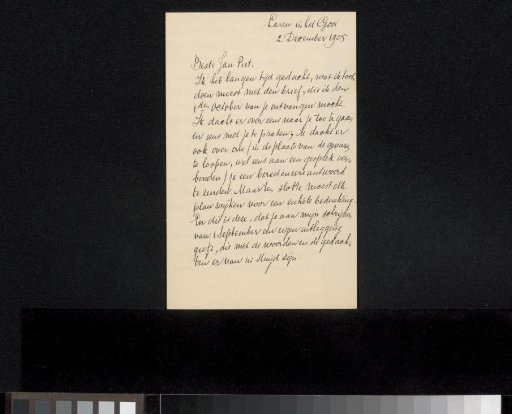 Laren in het Gooi
2 December 1905
Beste Jan Piet.
Ik heb langen tijd gedacht, wat ik toch
doen moest met den brief, die ik den
October van je ontvangen mocht.
Ik dacht er over eens naar je toe te gaan
en eens met je te praten; ik dacht er
ook over om (in de plaats van de graag
te loopen, wel eens aan een gesprek ver-
bonden) je een beredeneerd antwoord
te zenden. Maar ten slotte moest elk
plan wijken voor een enkele bedenking.
En dit is deze, dat je aan mijn schrijven
van 1 September een eigen uitlegging
geeft, die met de woorden en de gedach-
ten er van in strijd zijn.